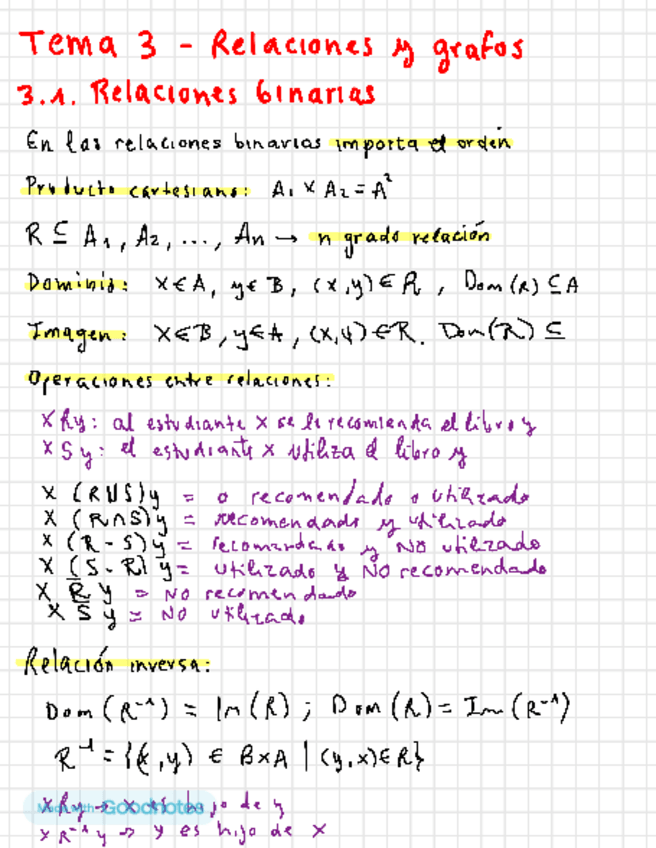 Tema 3 - Relaciones y grafos
3.1. Relaciones binarias
En las relaciones binarias importa el orden
Producto cartesiano: A₁ x A₂ = A²
R ⊆ A₁, A₂, ..., An → n grado relación
Dominio: x∈A, y∈B, (x,y)∈R, Dom(R) ⊆A
Imagen: x∈B, y∈A, (x,y)∈R. Dom(R) ⊆
Operaciones entre relaciones:
x R y: al estudiante x se le recomienda el libro y
x S y: el estudiante x utiliza el libro y
x (R∪S) y = o recomendado o utilizado
x (R∩S) y = recomendado y utilizado
x (R-S) y = recomendado y NO utilizado
x (S-R) y = utilizado y NO recomendado
x R̅ y = NO recomendado
x S̅ y = NO utilizado
Relación inversa:
Dom(R⁻¹) = Im(R); Dom(R) = Im(R⁻¹)
R⁻¹ = {(x,y) ∈ BxA | (y,x)∈R}
Made with Goodnotes
x R y → x es hijo de y
x R⁻¹ y → y es hijo de x